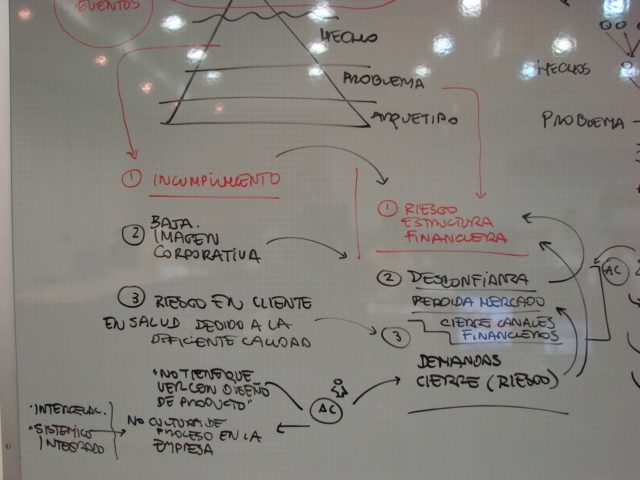 EVENTOS
HECHO
PROBLEMA
ARQUETIPO
HECHOS
PROBLEMA
1 INCUMPLIMIENTO
2 BAJA
IMAGEN
CORPORATIVA
3 RIESGO EN CLIENTE
EN SALUD DEDIDO A LA
DEFICIENTE CALIDAD
1 RIESGO
ESTRUCTURA
FINANCIERA
2 DESCONFIANZA
PERDIDA MERCADO
3 CIERRE CANALES
FINANCIEROS
DEMANDAS
CIERRE (RIESGO)
AC
"NO TIENE QUE
VER CON DISEÑO
DE PRODUCTO"
AC
NO CULTURA DE
PROCESO EN LA
EMPRESA
• INTERRELAC.
• SISTEMICO
INTEGRADO